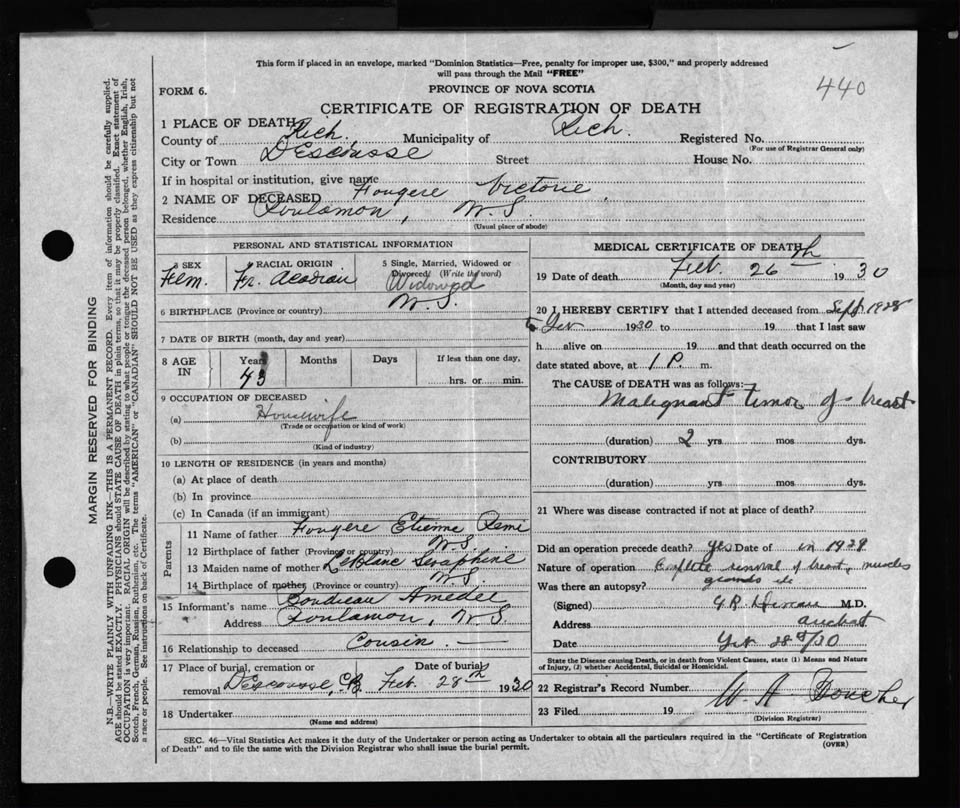 This form if placed in an envelope, marked "Dominion Statistics—Free, penalty for improper use, $300," and properly addressed
will pass through the Mail "FREE"
440
FORM 6.
PROVINCE OF NOVA SCOTIA
CERTIFICATE OF REGISTRATION OF DEATH
1 PLACE OF DEATH
County of Rich. Municipality of Rich. Registered No.
(For use of Registrar General only)
City or Town D'Escousse Street House No.
If in hospital or institution, give name
2 NAME OF DECEASED Fougere Victorie
Residence Poulamon, N.S.
(Usual place of abode)
MARGIN RESERVED FOR BINDING
N.B.—WRITE PLAINLY WITH UNFADING INK—THIS IS A PERMANENT RECORD. Every item of information should be carefully supplied.
AGE should be stated EXACTLY. PHYSICIANS should STATE CAUSE OF DEATH in plain terms, so that it may be properly classified. Exact statement of
OCCUPATION is very important. RACIAL ORIGIN will be described by stating to what people or tongue the deceased person belonged, whether English, Irish,
Scotch, French, German, Russian, Ruthenian, etc. The terms "AMERICAN" or "CANADIAN" SHOULD NOT BE USED as they express citizenship but not
a race or people. See instructions on back of Certificate.
PERSONAL AND STATISTICAL INFORMATION
3 SEX
Fem.
4 RACIAL ORIGIN
Fr. Acadian
5 Single, Married, Widowed or
Divorced (Write the word)
Widowed
6 BIRTHPLACE (Province or country) N.S.
7 DATE OF BIRTH (month, day and year)
8 AGE IN Years Months Days If less than one day,
43 hrs. or min.
9 OCCUPATION OF DECEASED
(a) Housewife
(Trade or occupation or kind of work)
(b)
(Kind of industry)
10 LENGTH OF RESIDENCE (in years and months)
(a) At place of death
(b) In province
(c) In Canada (if an immigrant)
Parents
11 Name of father Fougere Etienne Remi
12 Birthplace of father (Province or country) N.S.
13 Maiden name of mother LeBlanc Seraphine
14 Birthplace of mother (Province or country) N.S.
15 Informant's name Boudreau Amedee
Address Poulamon, N.S.
16 Relationship to deceased Cousin
17 Place of burial, cremation or Date of burial
removal D'Escousse, C.B. Feb. 28th 1930
18 Undertaker
(Name and address)
MEDICAL CERTIFICATE OF DEATH
19 Date of death Feb. 26th 1930
(Month, day and year)
20 I HEREBY CERTIFY that I attended deceased from Sept. 1928
to Feb 1930 to 19 that I last saw
h alive on 19 and that death occurred on the
date stated above, at 1 P. m.
The CAUSE of DEATH was as follows:
Malignant tumor of breast
(duration) 2 yrs. mos. dys.
CONTRIBUTORY
(duration) yrs. mos. dys.
21 Where was disease contracted if not at place of death?
Did an operation precede death? Yes Date of in 1929
Nature of operation Complete removal of breast, muscles
glands etc
Was there an autopsy?
(Signed) M.D.
Address Arichat
Date Feb 28th/30
State the Disease causing Death, or in death from Violent Causes, state (1) Means and Nature
of Injury, (2) whether Accidental, Suicidal or Homicidal.
22 Registrar's Record Number
23 Filed 19 W. A. Boucher
(Division Registrar)
SEC. 46—Vital Statistics Act makes it the duty of the Undertaker or person acting as Undertaker to obtain all the particulars required in the "Certificate of Registration
of Death" and to file the same with the Division Registrar who shall issue the burial permit.
(OVER)